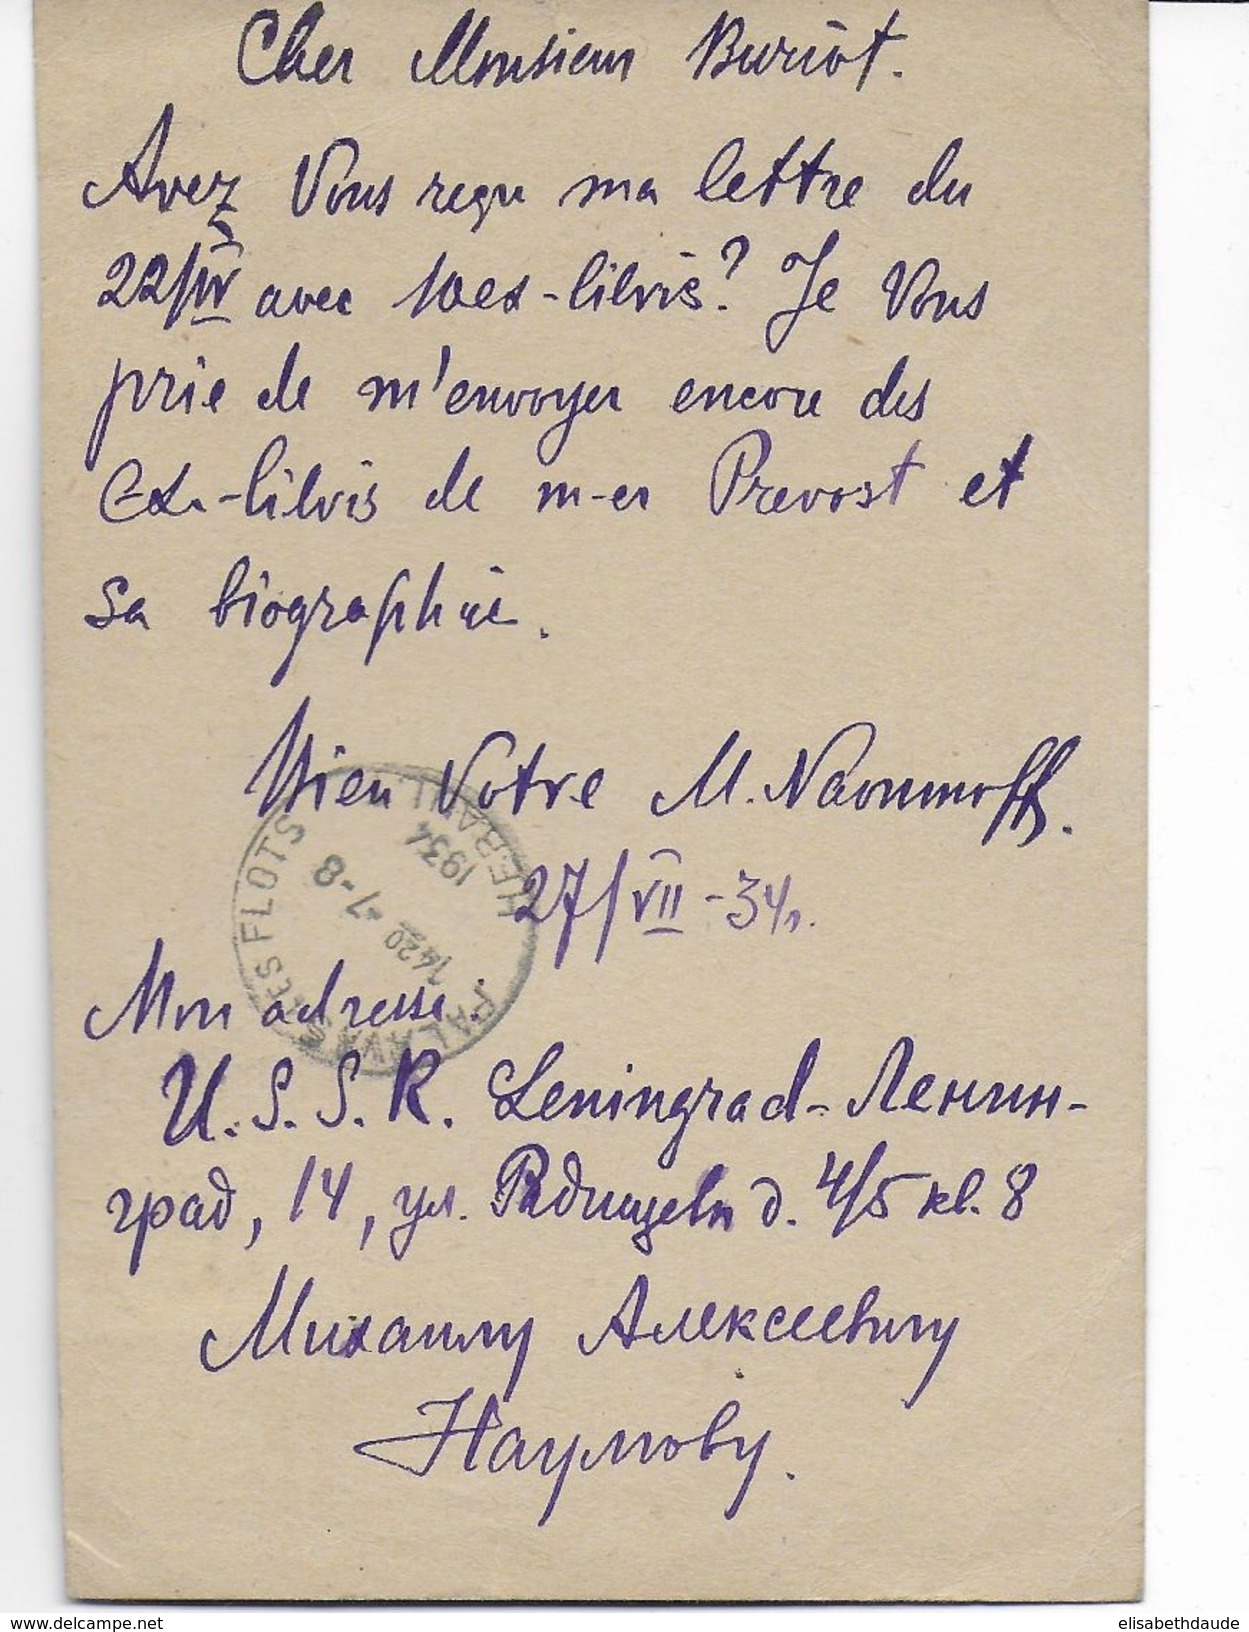 Cher Monsieur Buriot.
Avez Vous reçu ma lettre du
22/IV avec 10 ex-libris? Je Vous
prie de m'envoyer encore des
Ex-libris de m-er Prevost et
sa biographie.
Mien Votre M. Naoumoff.
27/VII-34г.
Mon adresse:
U.S.S.R. Leningrad-Ленин-
град, 14, ул. Радищева д. 4/5 кв. 8
Михаилу Алексеевичу
Наумову.
PALAVAS LES FLOTS
HERAULT
1420 7-8
1934
delcampe.net
elisabethdaude